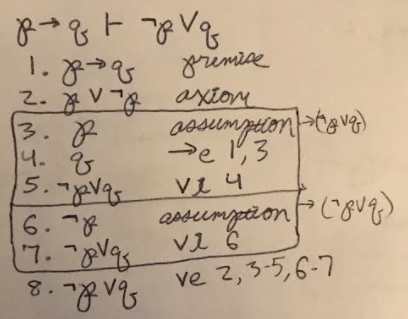 p → q ⊢ ¬p ∨ q
1. p → q premise
2. p ∨ ¬p axiom
3. p assumption → (¬p∨q)
4. q →e 1, 3
5. ¬p∨q ∨i 4
6. ¬p assumption → (¬p∨q)
7. ¬p∨q ∨i 6
8. ¬p∨q ∨e 2, 3-5, 6-7